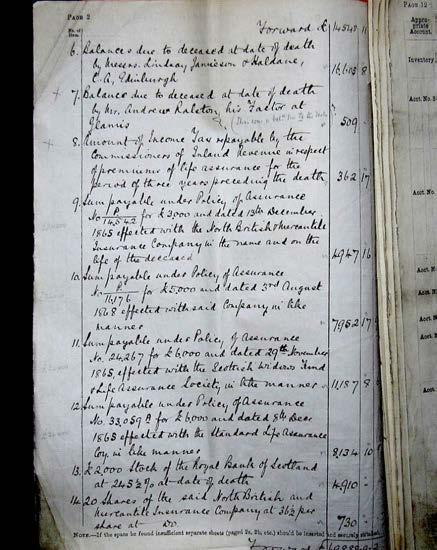 PAGE 2
No. of Item.
Forward £ 14548 11
6. Balances due to deceased at date of death
by Messrs. Lindsay Jamieson & Haldane,
C.A. Edinburgh 16,603 8
7. Balance due to deceased at date of death
by Mr. Andrew Ralston, his Factor at
Glamis 509
8. Amount of Income Tax repayable by the
Commissioners of Inland Revenue in respect
of premiums of life assurance for the
period of three years preceding the death 362 17
9. Sum payable under Policy of Assurance
No. P/14542 for £3000 and dated 13th December
1865 effected with the North British & Mercantile
Insurance Company in the name and on the
life of the deceased 4947 16
10. Sum payable under Policy of Assurance
No. P/16176 for £5,000 and dated 3rd August
1868 effected with said Company in like
manner 7952 17
11. Sum payable under Policy of Assurance
No. 24,267 for £6000 and dated 29th November
1865, effected with the Scottish Widows Fund
& Life Assurance Society in like manner 11,187 8
12. Sum payable under Policy of Assurance
No. 33,059 for £6,000 and dated 8th Decr
1865 effected with the Standard Life Assurance
Coy. in like manner 8,134 10
13. £2,000 Stock of the Royal Bank of Scotland
at 245½% at date of death 4,910
14. 20 Shares of the said North British and
Mercantile Insurance Company at 36½ per
share at Do. 730
NOTE.—If the space be found insufficient separate sheets (paged 2a, 2b, etc.) should be inserted and securely
Forward £
PAGE 12
Appro-
priate
Account.
Inventory
Acct. No. 3
Acct. No.
Acct. No.
Acct. N
Acct. N
Acct. No
Acct. No